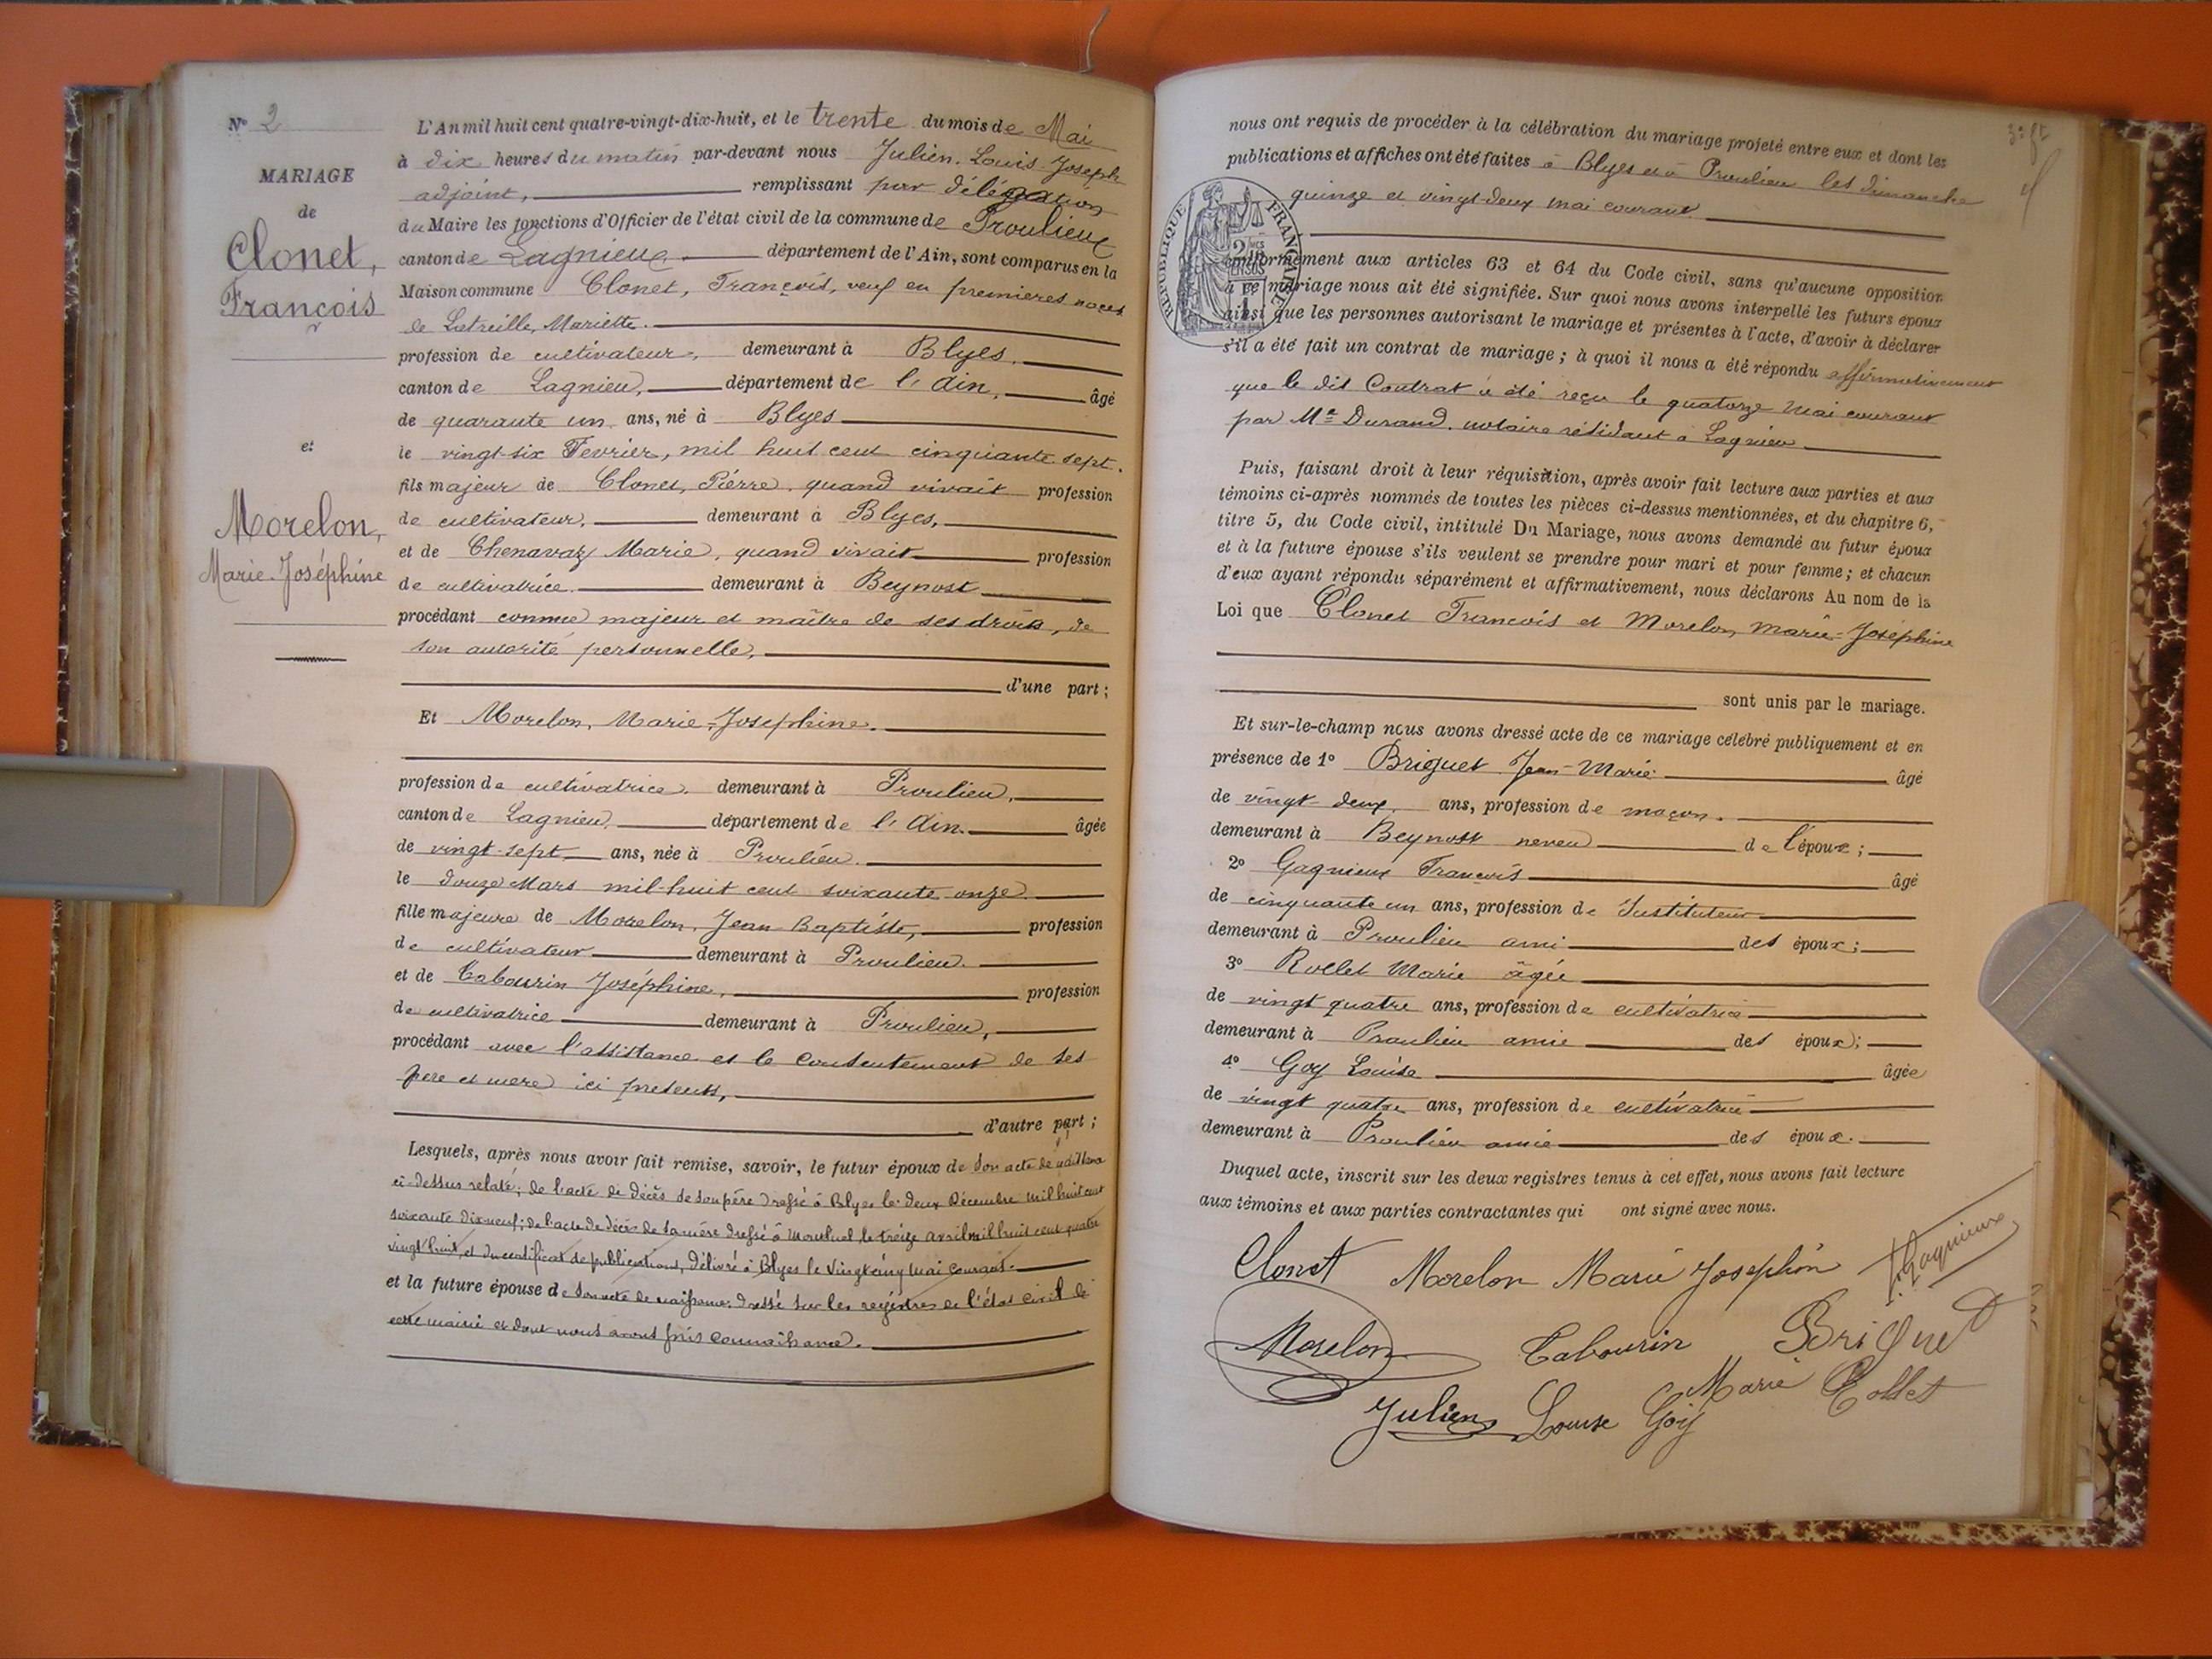 N° 2
MARIAGE
de
Clonet,
François
et
Morelon,
Marie-Joséphine
L'An mil huit cent quatre-vingt-dix-huit, et le trente du mois de Mai
à dix heures du matin par-devant nous Julien, Louis-Joseph
adjoint, remplissant par délégation
du Maire les fonctions d'Officier de l'état civil de la commune de Proulieux
canton de Lagnieux département de l'Ain, sont comparus en la
Maison commune Clonet, François, veuf en premières noces
de Latreille, Mariette.
profession de cultivateur, demeurant à Blyes,
canton de Lagnieu, département de l'Ain, âgé
de quarante un ans, né à Blyes
le vingt-six Fevrier, mil huit cent cinquante sept.
fils majeur de Clonet, Pierre, quand vivait profession
de cultivateur, demeurant à Blyes,
et de Chenavaz Marie, quand vivait profession
de cultivatrice. demeurant à Beynost
procédant comme majeur et maître de ses droits, de
son autorité personnelle,
d'une part ;
Et Morelon, Marie-Josephine.
profession de cultivatrice, demeurant à Proulieu,
canton de Lagnieu, département de l'Ain. âgée
de vingt-sept ans, née à Proulieu.
le douze Mars mil-huit cent soixante-onze.
fille majeure de Morelon, Jean-Baptiste, profession
de cultivateur demeurant à Proulieu.
et de Cabourin Joséphine, profession
de cultivatrice demeurant à Proulieu,
procédant avec l'assistance et le consentement de ses
père et mere ici présents,
d'autre part ;
Lesquels, après nous avoir fait remise, savoir, le futur époux de son acte de naissance
ci-dessus relaté; de l'acte de décès de son père dressé à Blyes le deux Décembre mil huit cent
soixante dix neuf; de l'acte de décès de sa mère dressé à Montluel, le treize avril mil huit cent quatre
vingt huit, et du certificat de publications, délivré à Blyes le vingt cinq Mai courant.
et la future épouse de son acte de naissance dressé sur les registres de l'état civil de
cette mairie et dont nous avons pris connaissance.
nous ont requis de procéder à la célébration du mariage projeté entre eux et dont les
publications et affiches ont été faites à Blyes et à Proulieu les dimanche
quinze et vingt-deux mai courant
RÉPUBLIQUE FRANÇAISE
conformément aux articles 63 et 64 du Code civil, sans qu'aucune opposition
à ce mariage nous ait été signifiée. Sur quoi nous avons interpellé les futurs époux
ainsi que les personnes autorisant le mariage et présentes à l'acte, d'avoir à déclarer
s'il a été fait un contrat de mariage ; à quoi il nous a été répondu affirmativement
que le dit Contrat a été reçu le quatorze mai courant
par Me Durand, notaire résidant à Lagnieu
Puis, faisant droit à leur réquisition, après avoir fait lecture aux parties et aux
témoins ci-après nommés de toutes les pièces ci-dessus mentionnées, et du chapitre 6,
titre 5, du Code civil, intitulé Du Mariage, nous avons demandé au futur époux
et à la future épouse s'ils veulent se prendre pour mari et pour femme ; et chacun
d'eux ayant répondu séparément et affirmativement, nous déclarons Au nom de la
Loi que Clonet François et Morelon, Marie-Joséphine
sont unis par le mariage.
Et sur-le-champ nous avons dressé acte de ce mariage célébré publiquement et en
présence de 1° Briguet Jean-Marie âgé
de vingt-deux, ans, profession de maçon.
demeurant à Beynost neveu de l'époux ;
2° Gagnieux François âgé
de cinquante un ans, profession de Instituteur
demeurant à Proulieu ami des époux ;
3° Rollet Marie âgée
de vingt quatre ans, profession de cultivatrice
demeurant à Proulieu amie des époux ;
4° Goy Louise âgée
de vingt quatre ans, profession de cultivatrice
demeurant à Proulieu amie des époux.
Duquel acte, inscrit sur les deux registres tenus à cet effet, nous avons fait lecture
aux témoins et aux parties contractantes qui ont signé avec nous.
Clonet Morelon Marie Josephin F. Gagnieux
Morelon Cabourin Briguet
Julien Louise Goy Marie Rollet